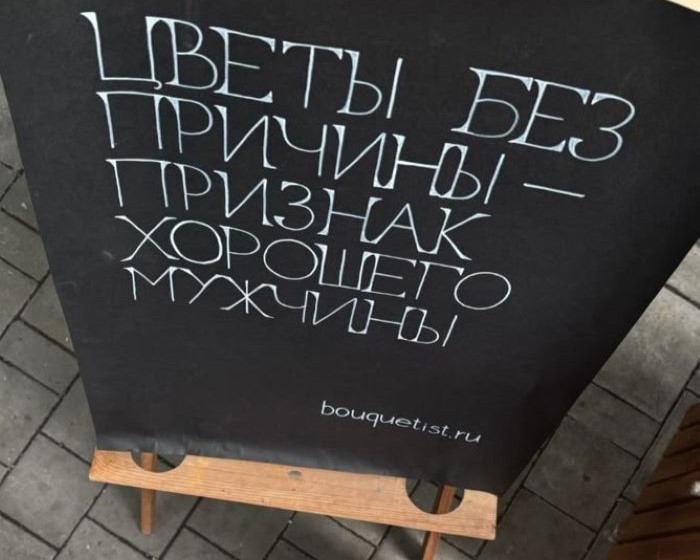 ЦВЕТЫ БЕЗ
ПРИЧИНЫ —
ПРИЗНАК
ХОРОШЕГО
МУЖЧИНЫ
bouquetist.ru